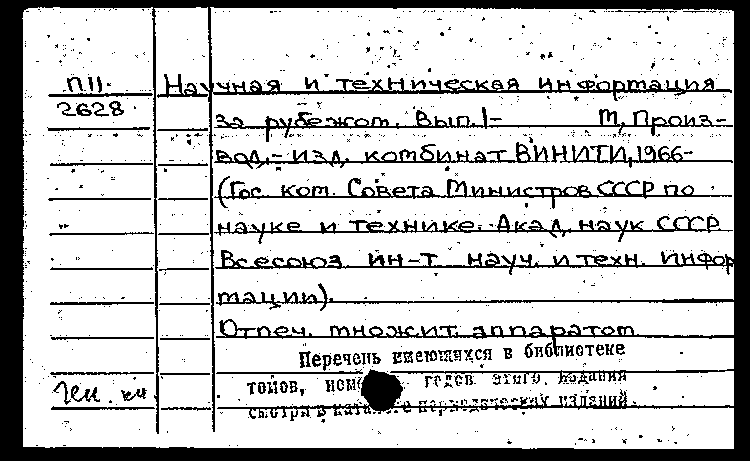 П11. Научная и техническая информация
2628. за рубежом. Вып. 1- М, Произ-
вод.-изд. комбинат ВИНИТИ, 1966-
(Гос. ком. Совета Министров СССР по
науке и технике. Акад. наук СССР
Всесоюз. ин-т науч. и техн. инфор
мации).
Отпеч. множит. аппаратом
Перечень имеющихся в библиотеке
томов, годов этого издания
смотри в периодических изданий.